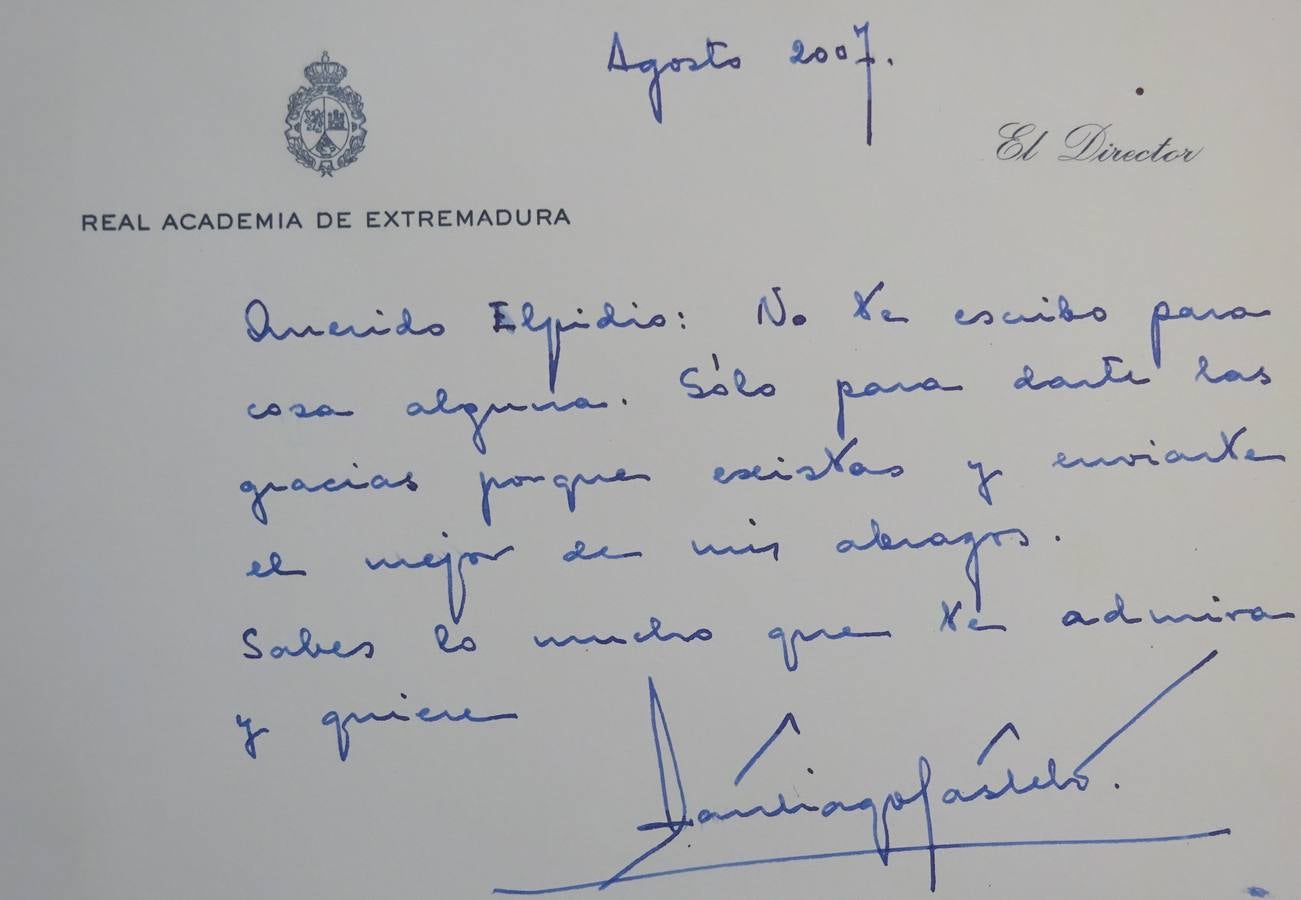 Agosto 2007.
El Director
REAL ACADEMIA DE EXTREMADURA
Querido Elpidio: No te escribo para
cosa alguna. Sólo para darte las
gracias porque existas y enviarte
el mejor de mis abrazos.
Sabes lo mucho que te admira
y quiere
Santiago Castelo.